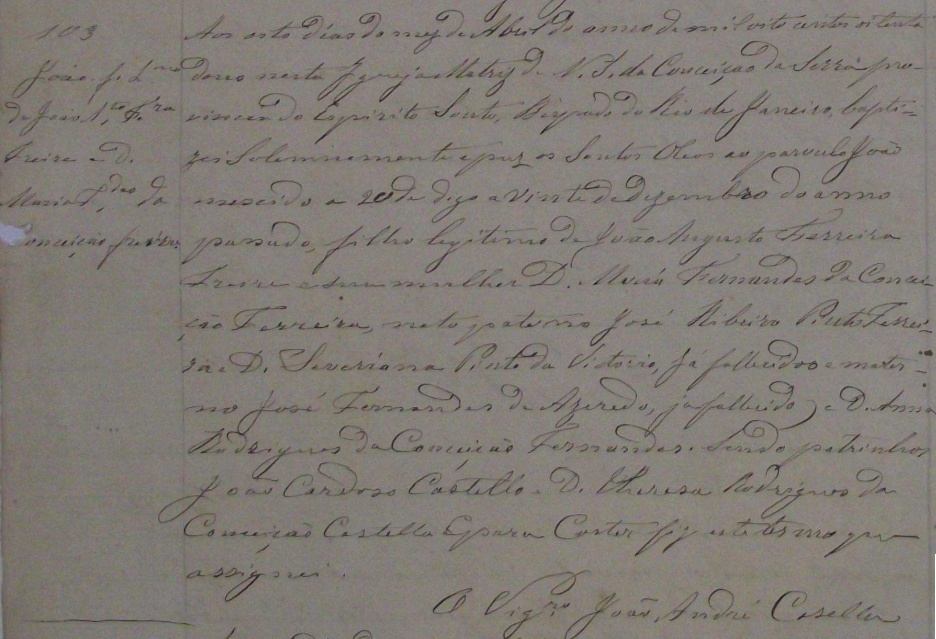 103
João f. L.mo
de João A.to F.ra
Freire e D.
Maria F.des da
Conceição Ferreira
Aos oito dias do mez de Abril do anno de mil oito centos oitenta
nesta Igreja Matriz de N. S. da Conceição da Serra pro-
vincia do Espirito Santo, Bispado do Rio de Janeiro, bapti-
zei Solemnemente e puz os Santos Oleos ao parvulo João
nascido a 20 de digo a Vinte de Dezembro do anno
passado, filho legitimo de João Augusto Ferreira
Freire e sua mulher D. Maria Fernandes da Concei-
ção Ferreira, neto paterno José Ribeiro Pinto Ferrei-
ra e D. Severiana Pinto da Victoria, já fallecidos e mater-
no José Fernandes de Azeredo, já fallecido, e D. Anna
Rodrigues da Conceição Fernandes. Sendo patrinhos
João Cardoso Castello e D. Theresa Rodrigues da
Conceição Castello E para Constar fiz este termo que
assignei.
O Vigr.o João André Casella